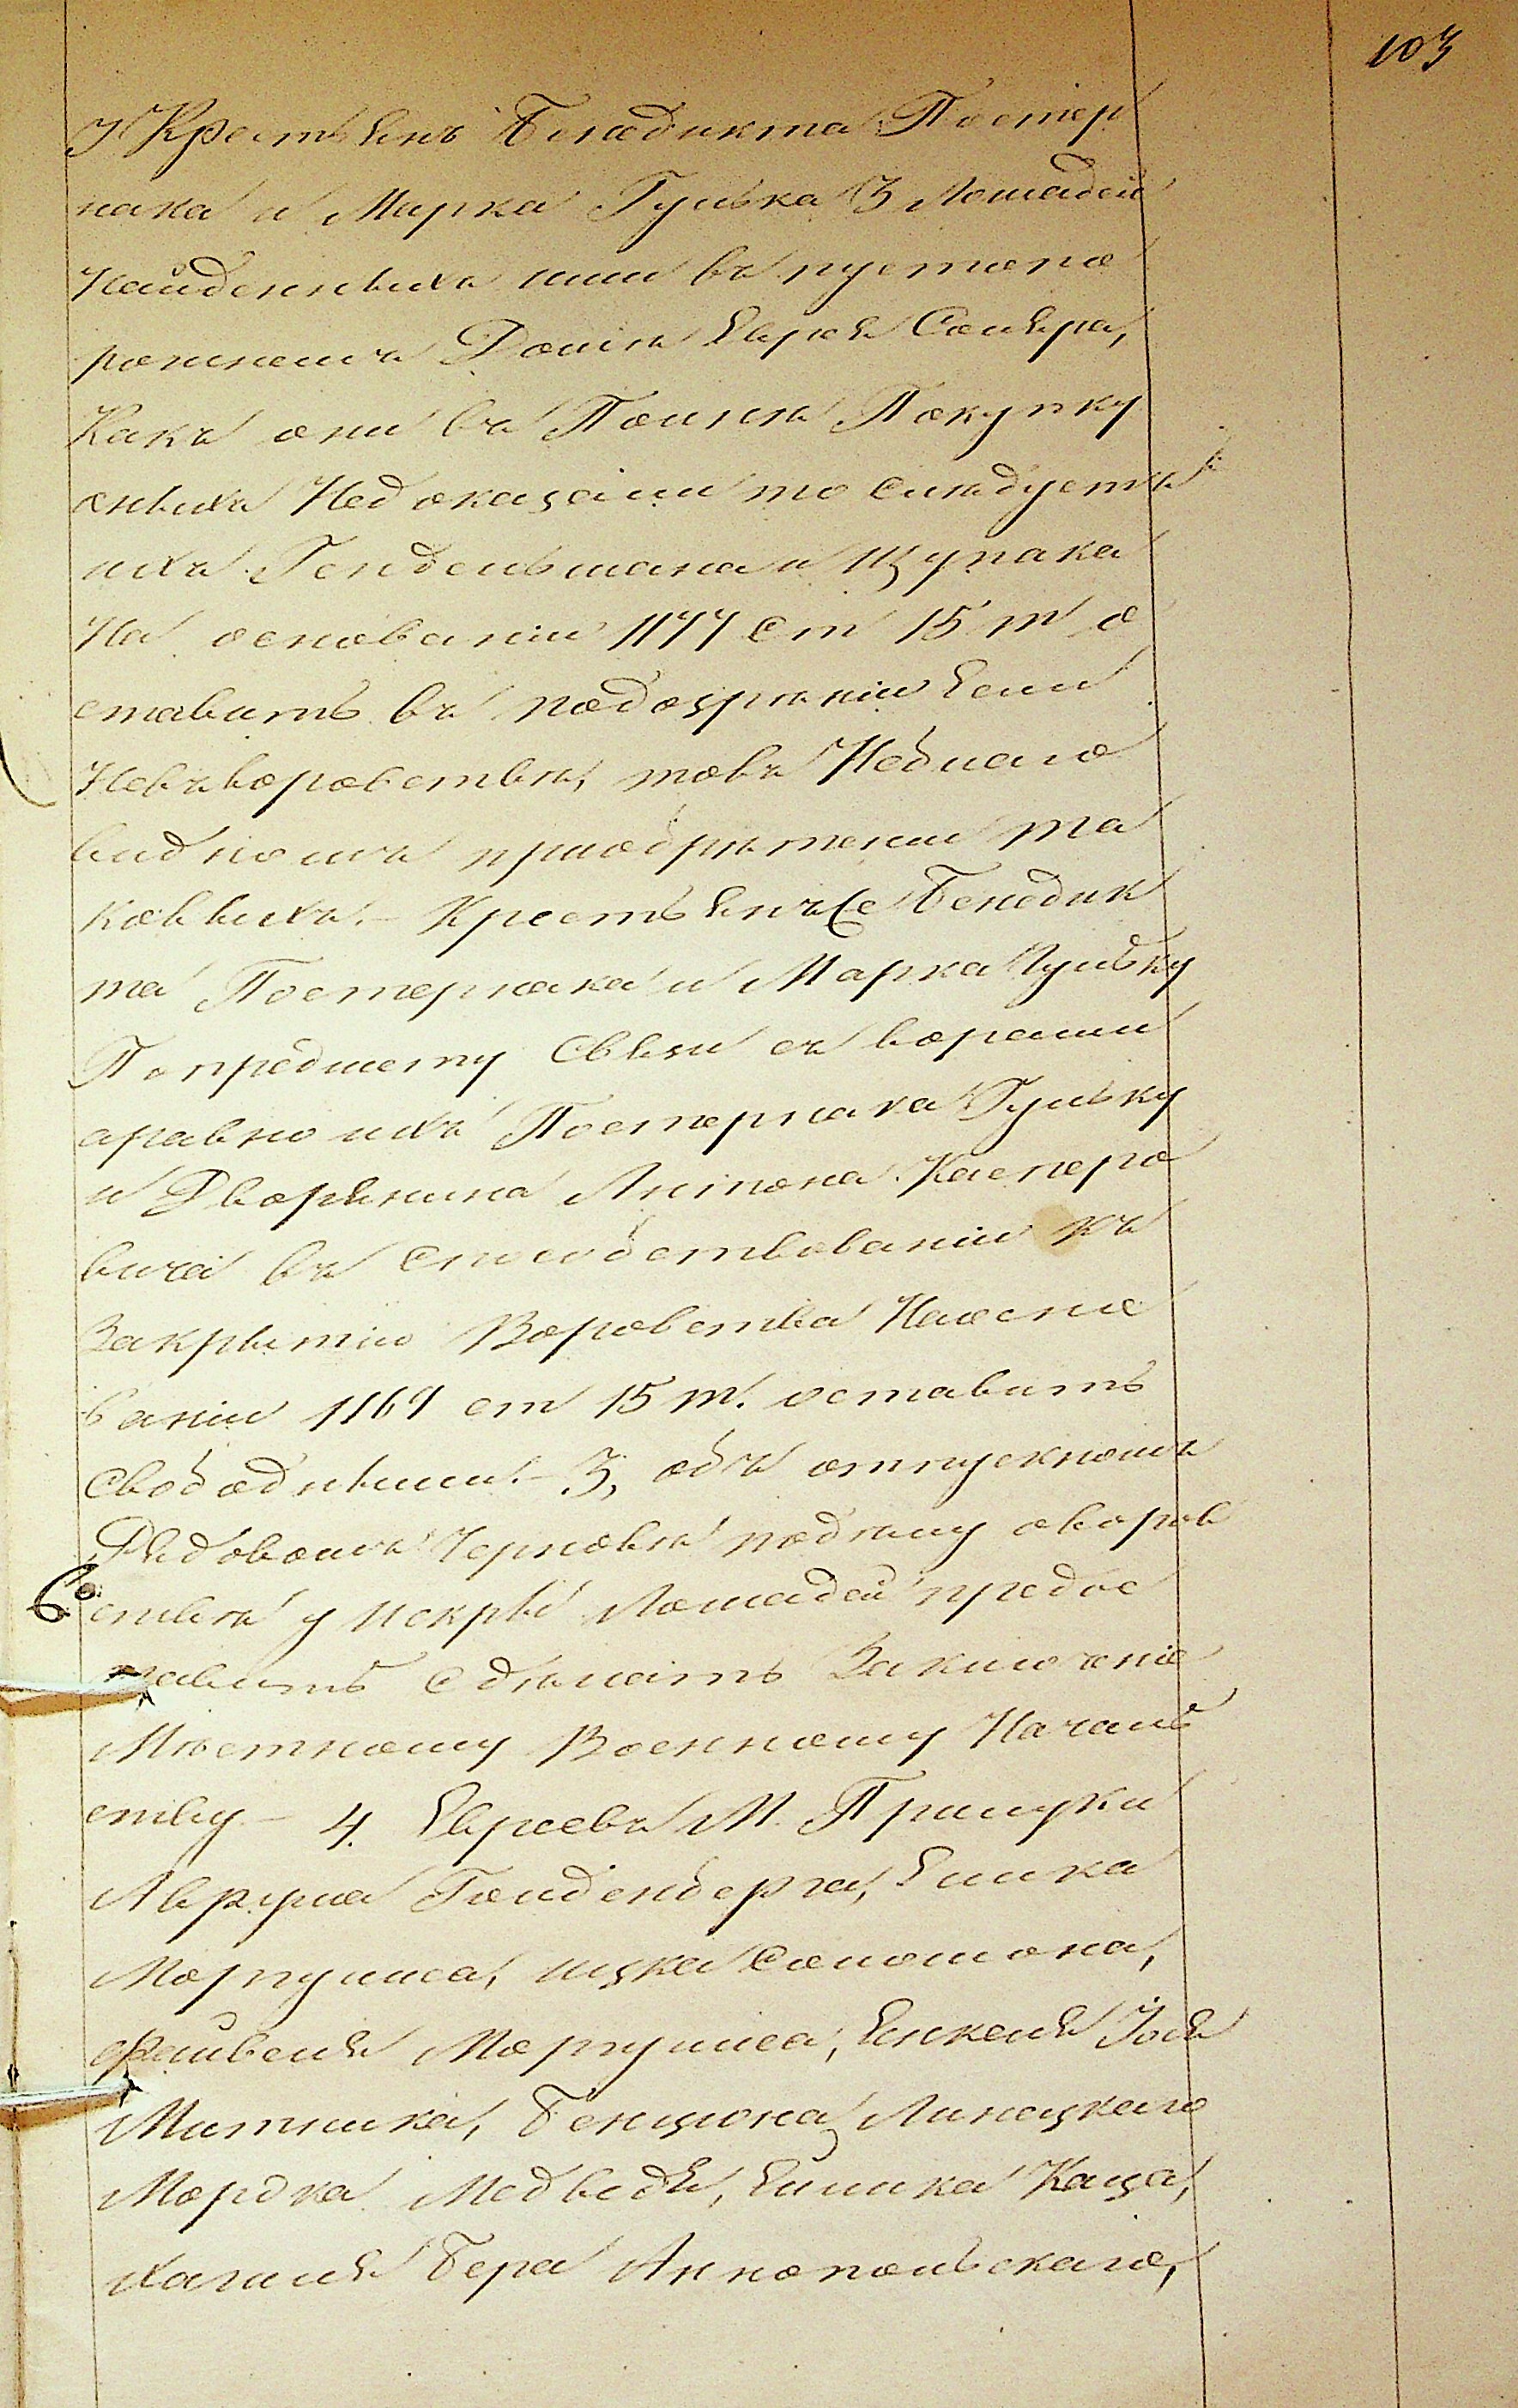 103
у Крестьянъ Бенедикта Постер
нака и Марка Гулька 3 Лошадей
Найденныхъ ими въ пустопо
рожнемъ Домѣ Еврея Сойера,
Какъ они въ Полнѣ Покупку
оныхъ Недоказали то слѣдуетъ
ихъ Гендельмана и Щупака
На основаніи 1177 ст 15 т о
ставить въ подозрѣніи Если
Невъворовствѣ, товъ Неблаго
видномъ приобрѣтеніи та
ковыхъ. – Крестьянъ Се Бенедик
та Постернака и Марка Гульку
По предмету Связи съ ворами
аравно ихъ Постернака Гульку
и Дворянина Антона Касперо
вича въ способствованіи къ
Закрытію Воровства Наосно
ваніи 1169 ст 15 т. оставить
Свободными. – 3, объ отпускномъ
Рядовомъ Черновѣ подъему оворов
ствѣ у Искры Лошадей предос
тавить Сдѣлать Заключеніе
Мѣстному Военному Началь
ству – 4. Евреевъ М. Прилуки
Аврума Гольденберга, Еиика
Моргулиса, Ицка Соломона,
Файвеля Моргулиса, Янкеля Іося
Митника, Бенциона Липецкаго
Мордка Медведя, Еиика Каца,
Хаима Бера Аннопольскаго,